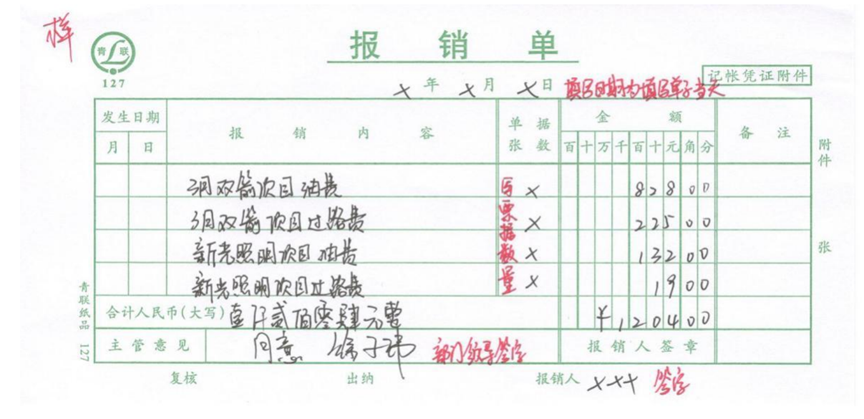 样
青联
127
报销单
记帐凭证附件
X年X月X日 填写日期为填写单子当天
发生日期 报销内容 单据张数 金额 备注
月 日 百十万千百十元角分
3月双箭项目油费 X 828 00
3月双箭项目过路费 X 225 00
新光照明项目油费 X 132 00
新光照明项目过路费 X 19 00
写票据数量
合计人民币(大写) 壹仟贰佰零肆元整 ¥1204 00
主管意见 同意 徐子玮 部门领导签字 报销人签章
复核 出纳 报销人 XXX 签字
附件 张
青联纸品 127